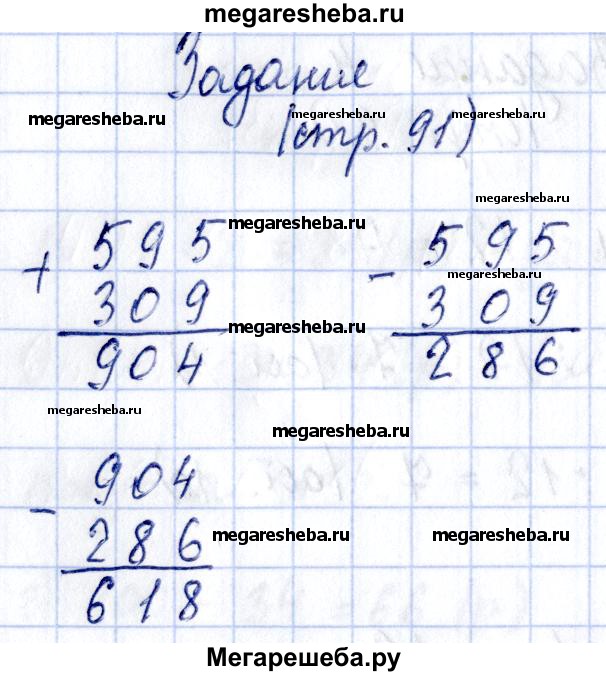 megaresheba.ru
Задание
megaresheba.ru
megaresheba.ru
(стр. 91)
megaresheba.ru
megaresheba.ru
+ 595
309
904
megaresheba.ru
megaresheba.ru
- 595
309
286
megaresheba.ru
megaresheba.ru
- 904
286
618
megaresheba.ru
megaresheba.ru
Мегарешеба.ру